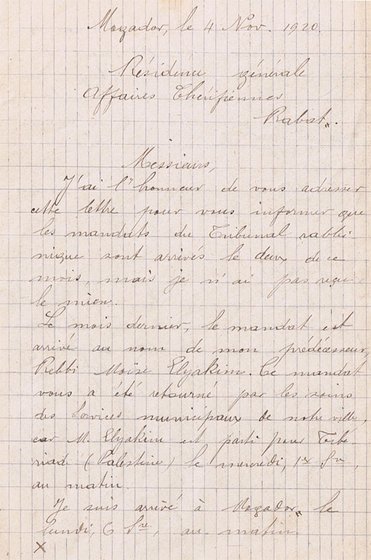 Mogador, le 4 Nov. 1920.
Résidence générale
Affaires Chérifiennes
Rabat.
Messieurs,
J'ai l'honneur de vous adresser
cette lettre pour vous informer que
les mandats du Tribunal rabbi-
nique sont arrivés le deux de ce
mois, mais je n'ai pas reçu
le mien.
Le mois dernier, le mandat est
arrivé au nom de mon prédécesseur,
Rebbi Moïse Elyakim. Ce mandat
vous a été retourné par les soins
des services municipaux de notre ville,
car M. Elyakim est parti pour Tibé-
riad (Palestine) le mercredi, 1er
au matin.
Je suis arrivé à Mogador le
lundi, 6 au matin.
X